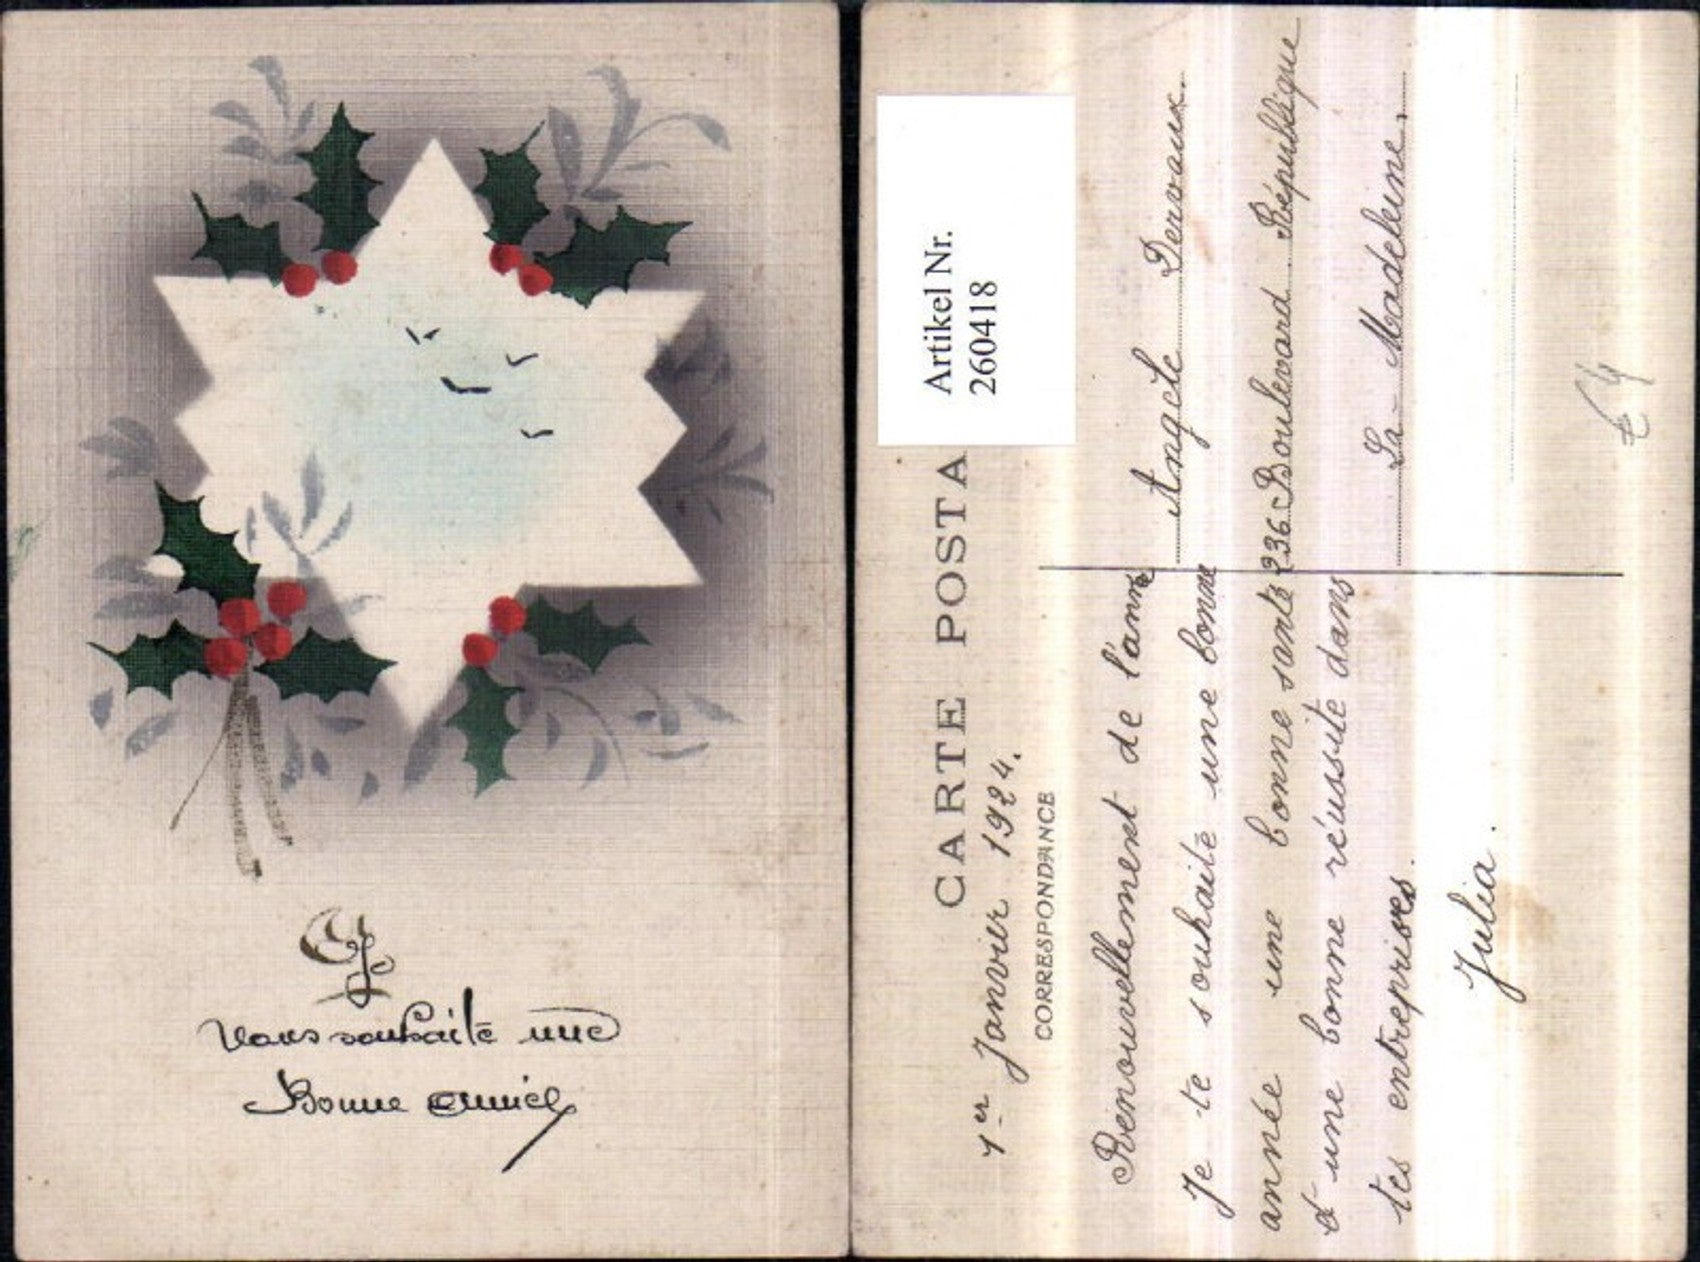 Je
Vous souhaite une
Bonne année
Artikel Nr.
260418
CARTE POSTA
1er Janvier 1924.
CORRESPONDANCE
Renouvellement de l'anné
Je te souhaite une bonne
année une bonne santé
et une bonne réussite dans
tes entreprises.
Julia.
Angèle Dervaux.
236 Boulevard République
La-Madeleine.